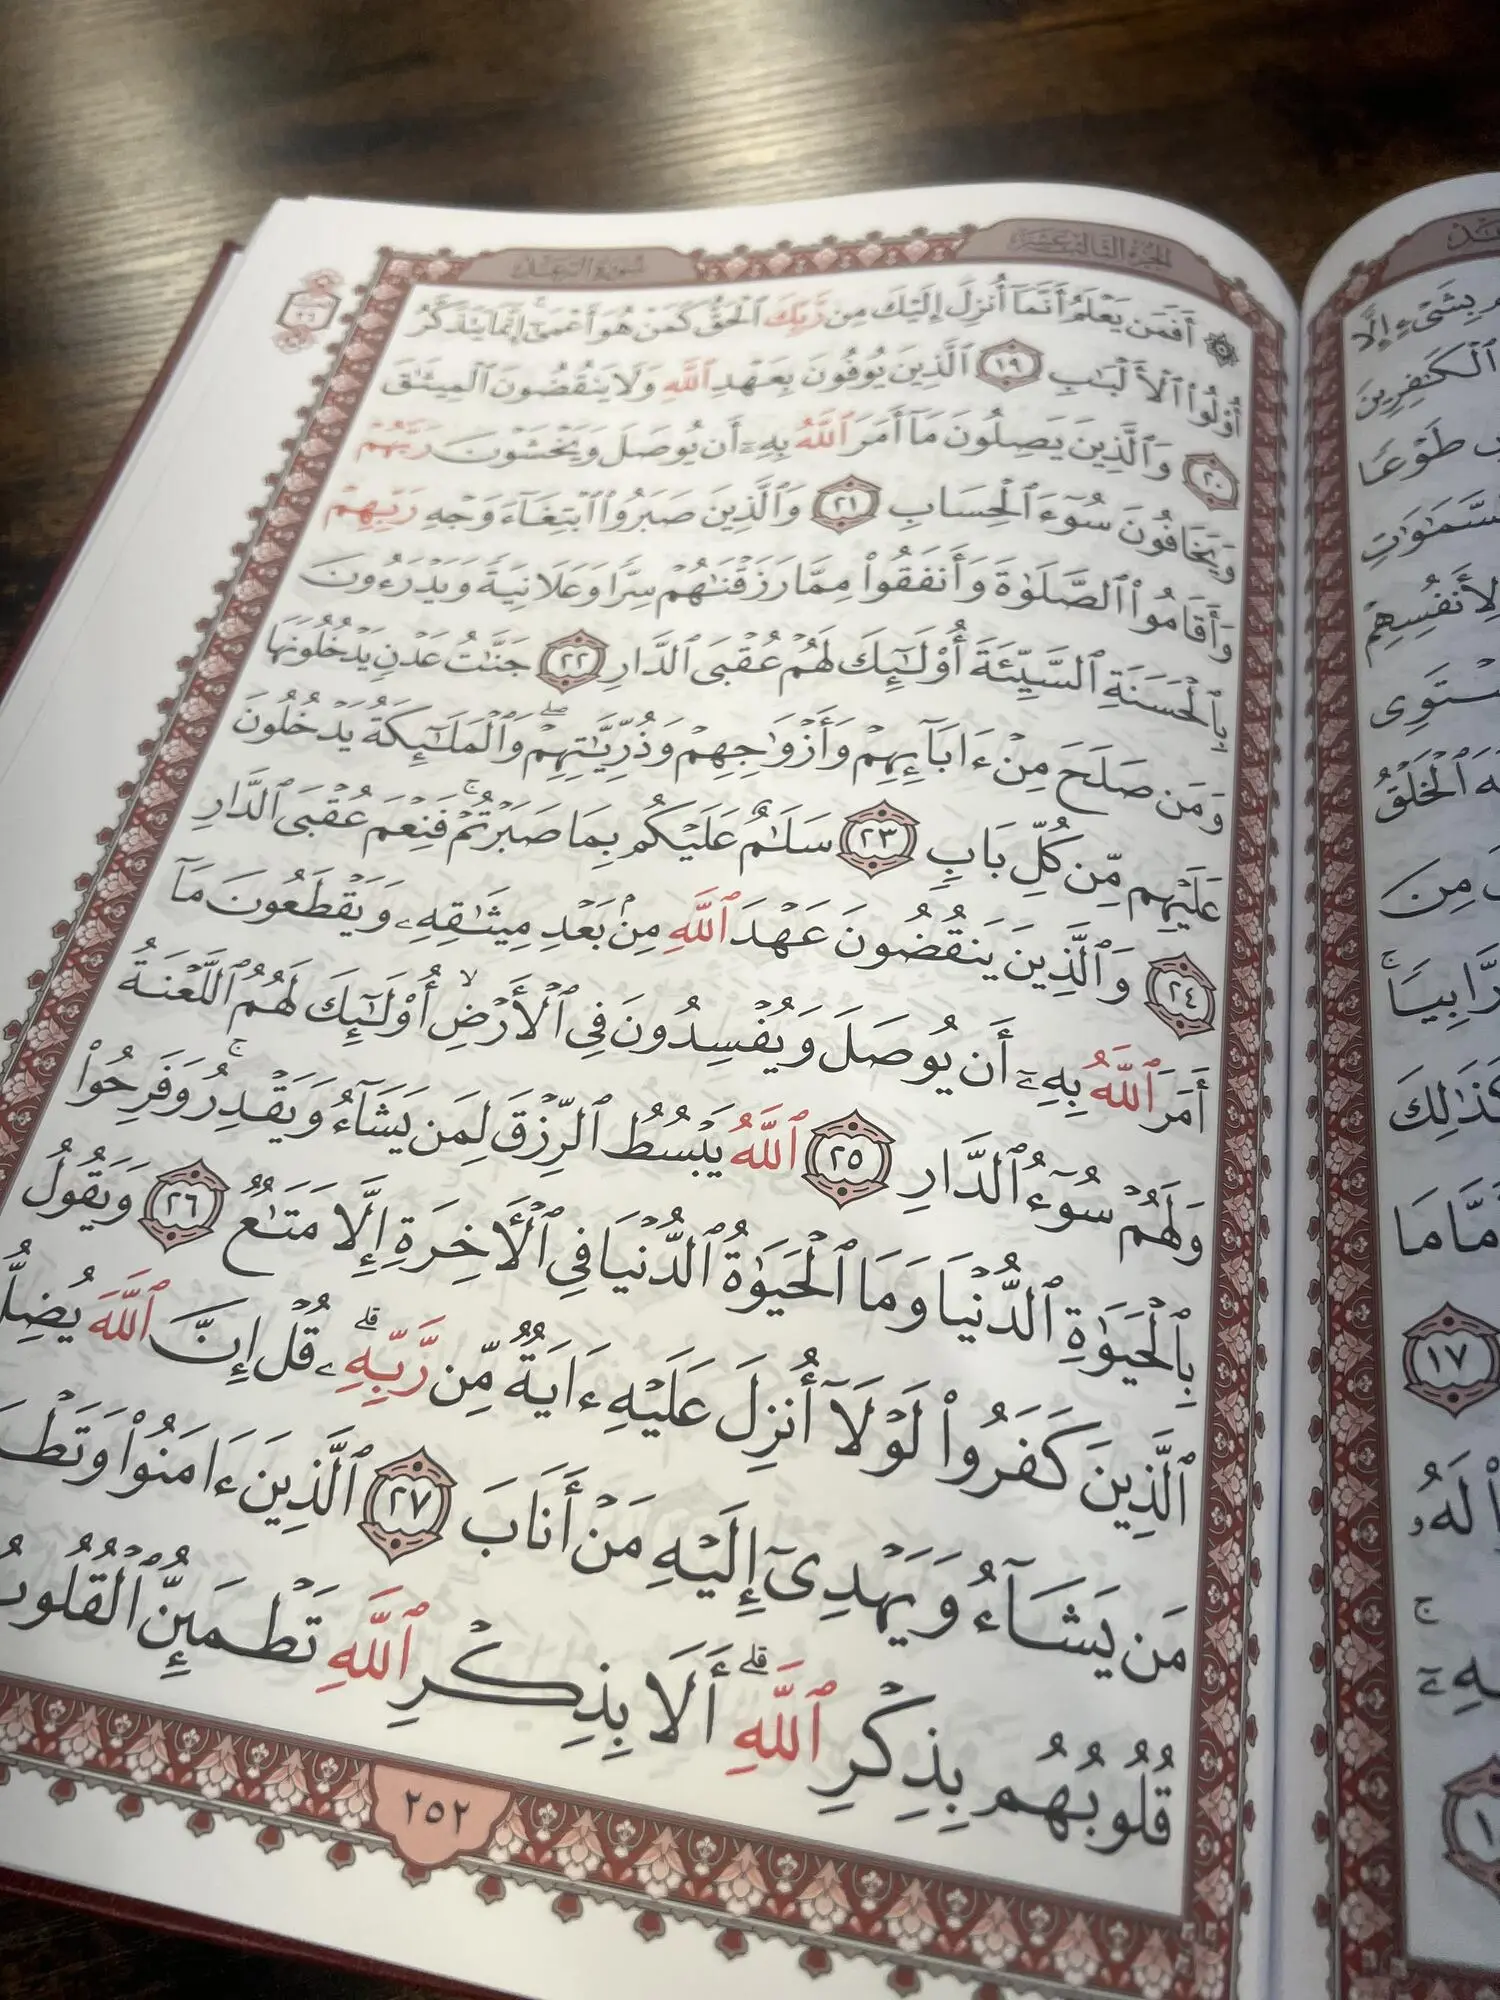 سُورَةُ الرَّعْدِ
الجُزْءُ الثَّالِثَ عَشَرَ
۞ أَفَمَن يَعْلَمُ أَنَّمَآ أُنزِلَ إِلَيْكَ مِن رَّبِّكَ ٱلْحَقُّ كَمَنْ هُوَ أَعْمَىٰٓ ۚ إِنَّمَا يَتَذَكَّرُ
أُو۟لُوا۟ ٱلْأَلْبَـٰبِ ١٩ ٱلَّذِينَ يُوفُونَ بِعَهْدِ ٱللَّهِ وَلَا يَنقُضُونَ ٱلْمِيثَـٰقَ
٢٠ وَٱلَّذِينَ يَصِلُونَ مَآ أَمَرَ ٱللَّهُ بِهِۦٓ أَن يُوصَلَ وَيَخْشَوْنَ رَبَّهُمْ
وَيَخَافُونَ سُوٓءَ ٱلْحِسَابِ ٢١ وَٱلَّذِينَ صَبَرُوا۟ ٱبْتِغَآءَ وَجْهِ رَبِّهِمْ
وَأَقَامُوا۟ ٱلصَّلَوٰةَ وَأَنفَقُوا۟ مِمَّا رَزَقْنَـٰهُمْ سِرًّا وَعَلَانِيَةً وَيَدْرَءُونَ
بِٱلْحَسَنَةِ ٱلسَّيِّئَةَ أُو۟لَـٰٓئِكَ لَهُمْ عُقْبَى ٱلدَّارِ ٢٢ جَنَّـٰتُ عَدْنٍ يَدْخُلُونَهَا
وَمَن صَلَحَ مِنْ ءَابَآئِهِمْ وَأَزْوَٰجِهِمْ وَذُرِّيَّـٰتِهِمْ ۖ وَٱلْمَلَـٰٓئِكَةُ يَدْخُلُونَ
عَلَيْهِم مِّن كُلِّ بَابٍ ٢٣ سَلَـٰمٌ عَلَيْكُم بِمَا صَبَرْتُمْ ۚ فَنِعْمَ عُقْبَى ٱلدَّارِ
٢٤ وَٱلَّذِينَ يَنقُضُونَ عَهْدَ ٱللَّهِ مِنۢ بَعْدِ مِيثَـٰقِهِۦ وَيَقْطَعُونَ مَآ
أَمَرَ ٱللَّهُ بِهِۦٓ أَن يُوصَلَ وَيُفْسِدُونَ فِى ٱلْأَرْضِ ۙ أُو۟لَـٰٓئِكَ لَهُمُ ٱللَّعْنَةُ
وَلَهُمْ سُوٓءُ ٱلدَّارِ ٢٥ ٱللَّهُ يَبْسُطُ ٱلرِّزْقَ لِمَن يَشَآءُ وَيَقْدِرُ ۚ وَفَرِحُوا۟
بِٱلْحَيَوٰةِ ٱلدُّنْيَا وَمَا ٱلْحَيَوٰةُ ٱلدُّنْيَا فِى ٱلْأَخِرَةِ إِلَّا مَتَـٰعٌ ٢٦ وَيَقُولُ
ٱلَّذِينَ كَفَرُوا۟ لَوْلَآ أُنزِلَ عَلَيْهِ ءَايَةٌ مِّن رَّبِّهِۦ ۗ قُلْ إِنَّ ٱللَّهَ يُضِلُّ
مَن يَشَآءُ وَيَهْدِىٓ إِلَيْهِ مَنْ أَنَابَ ٢٧ ٱلَّذِينَ ءَامَنُوا۟ وَتَطْ
قُلُوبُهُم بِذِكْرِ ٱللَّهِ ۗ أَلَا بِذِكْرِ ٱللَّهِ تَطْمَئِنُّ ٱلْقُلُوبُ
٢٥٢
بِشَىْءٍ إِلَّا
ٱلْكَـٰفِرِينَ
طَوْعًا
لِأَنفُسِهِمْ
ٱلْخَلْقُ
مِنَ
رَّابِيًا ۚ
كَذَٰلِكَ
١٧
لَهُۥ